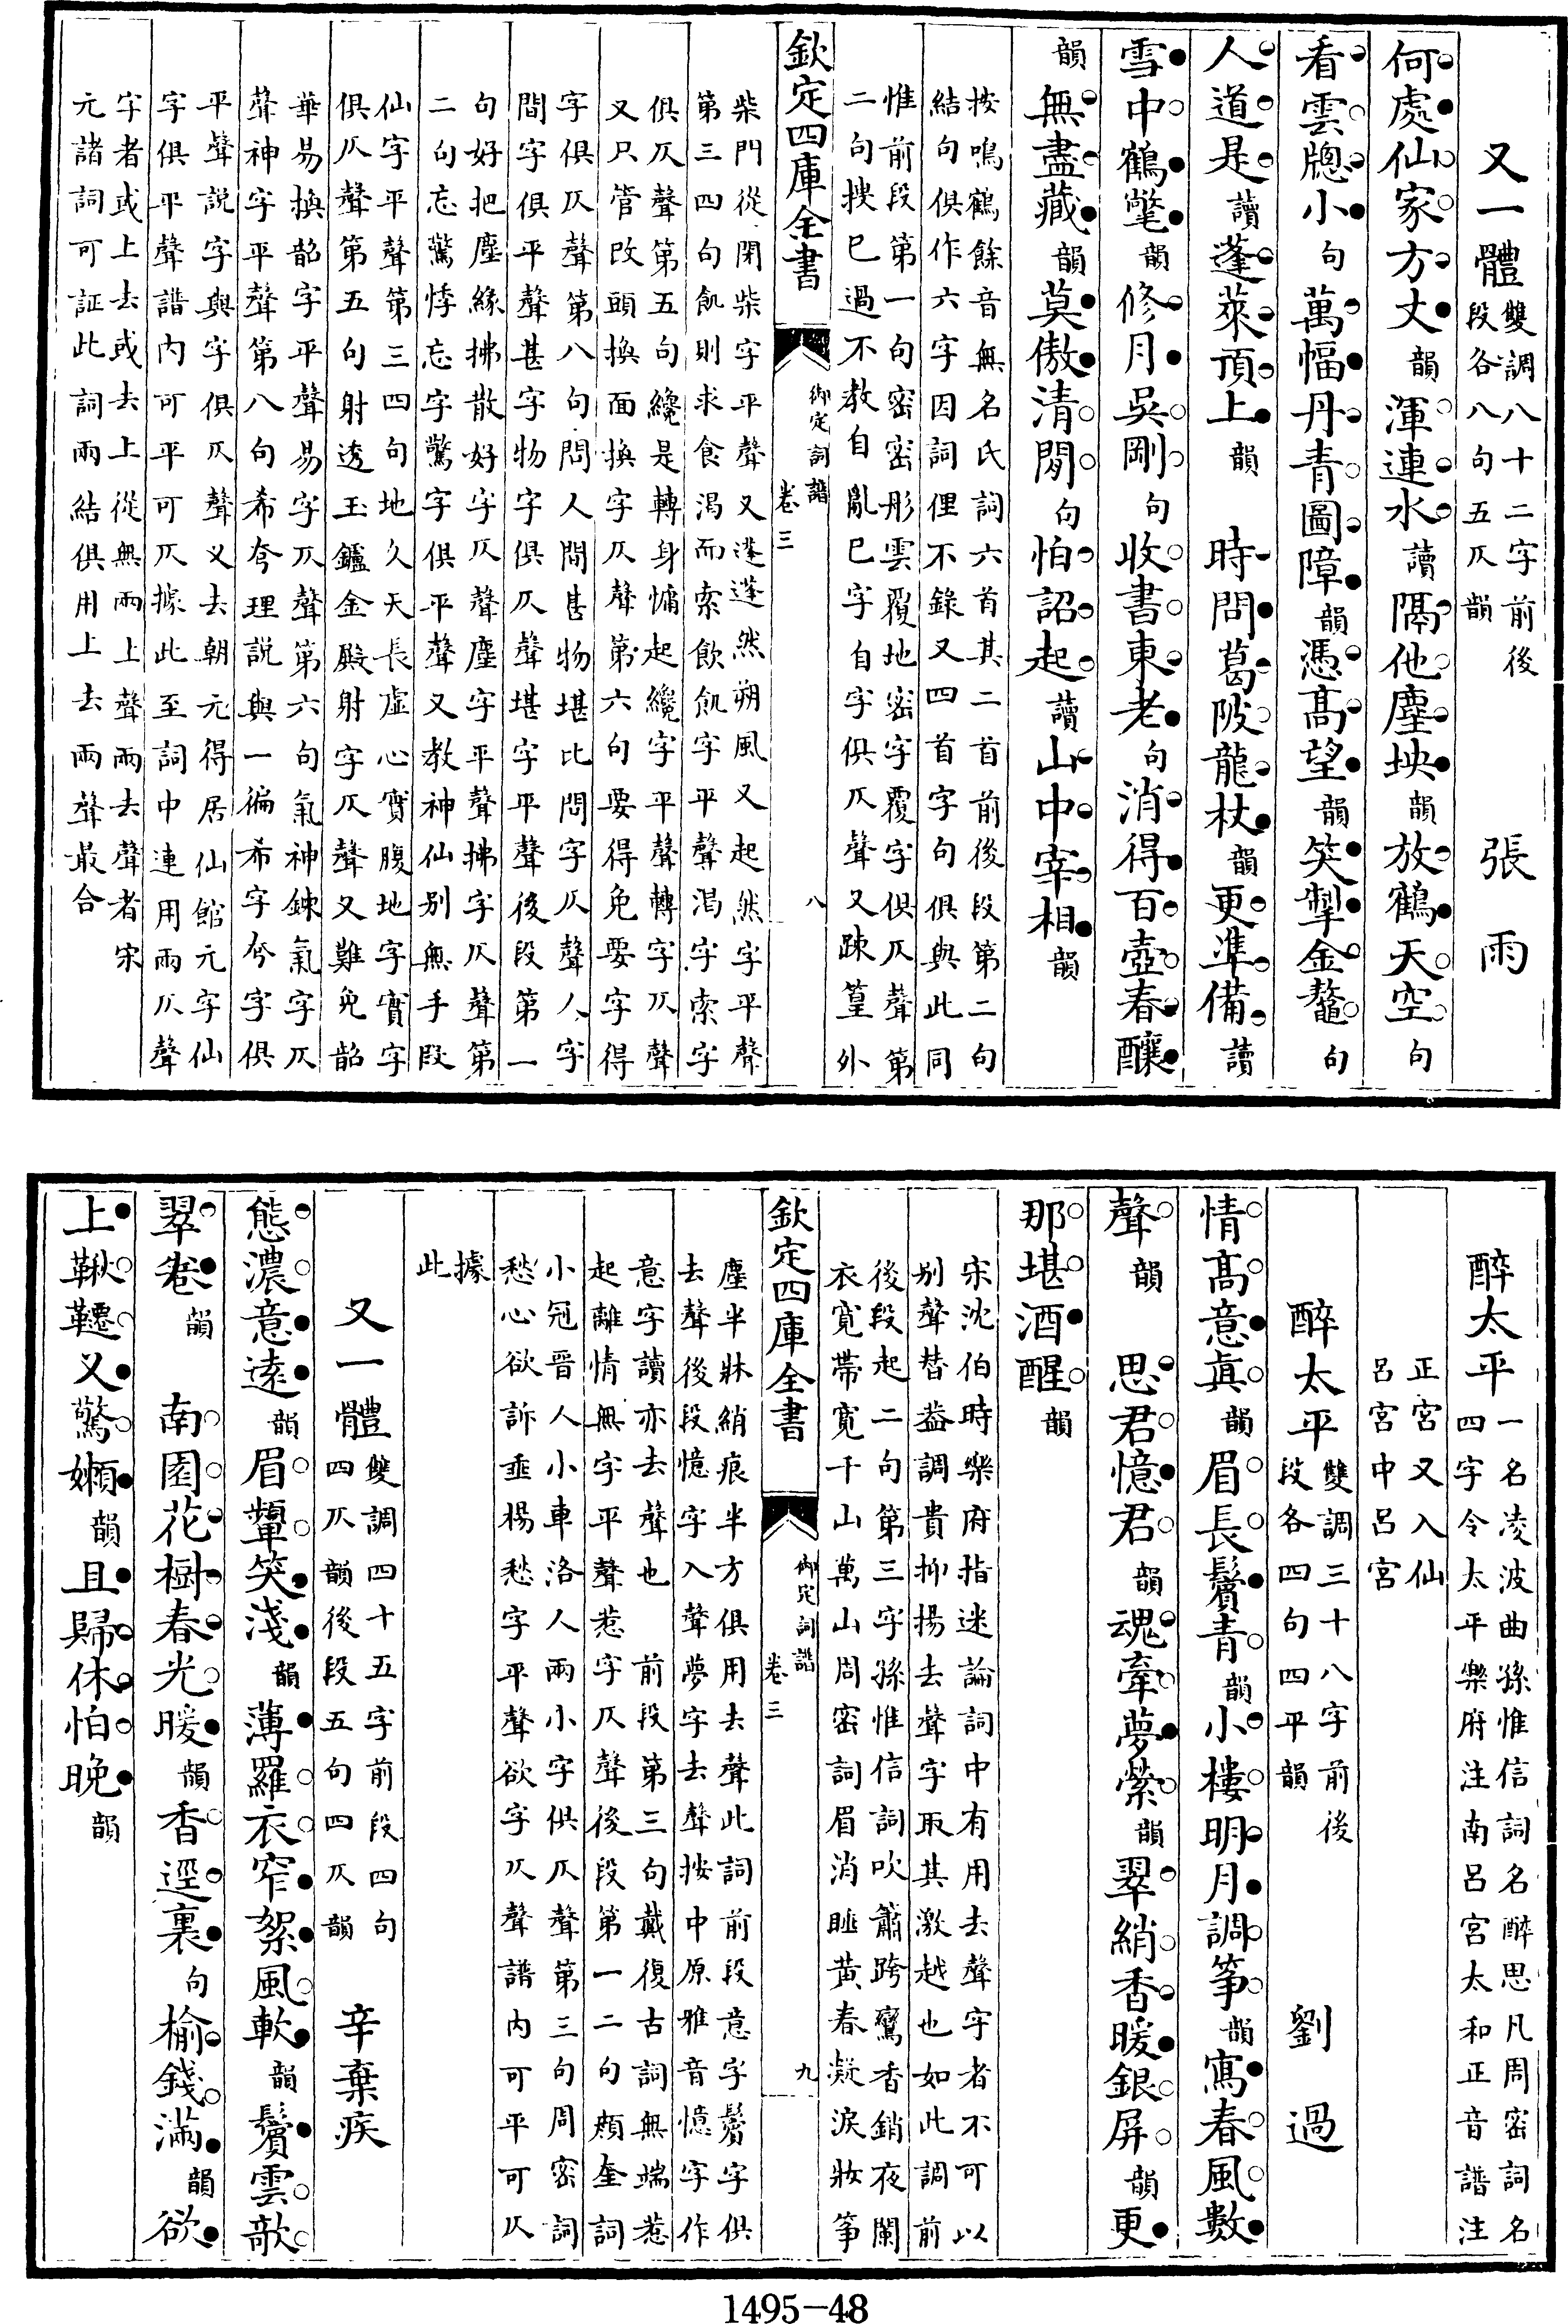 又一體雙調八十二字前後段各八句五仄韻 張雨
何處仙家方丈韻渾連水讀隔他塵坱韻放鶴天空句
看雲牕小句萬幅丹青圖障韻憑髙望韻笑掣金鼇句
人道是讀蓬萊頂上韻 時問葛陂龍杖韻更準備讀
雪中鶴氅韻修月吳剛句收書東老句消得百壺春釀
韻無盡藏韻莫傲清閒句怕詔起讀山中宰相韻
按鳴鶴餘音無名氏詞六首其二首前後段第二句
結句俱作六字因詞俚不錄又四首字句俱與此同
惟前段第一句密密彤雲覆地密字覆字俱仄聲第
二句拽巳過不教自亂巳字自字俱仄聲又踈篁外
欽定四庫全書 御定詞譜 卷三 八
柴門從閉柴字平聲又蓬蓬然朔風又起然字平聲
第三四句飢則求食渴而索飲飢字平聲渴字索字
俱仄聲第五句纔是轉身慵起纔字平聲轉字仄聲
又只管改頭換面換字仄聲第六句要得免要字得
字俱仄聲第八句問人間甚物堪比問字仄聲人字
間字俱平聲甚字物字俱仄聲堪字平聲後段第一
句好把塵緣拂散好字仄聲塵字平聲拂字仄聲第
二句忘驚悸忘字驚字俱平聲又教神仙别無手叚
仙字平聲第三四句地久天長虛心實腹地字實字
俱仄聲第五句射透玉鑪金殿射字仄聲又難免韶
華易換韶字平聲易字仄聲第六句氣神鍊氣字仄
聲神字平聲第八句希夸理說與一徧希字夸字俱
平聲説字與字俱仄聲又去朝元得居仙館元字仙
字俱平聲譜內可平可仄據此至詞中連用兩仄聲
字者或上去或去上從無兩上聲兩去聲者宋
元諸詞可証此詞兩結俱用上去兩聲最合
醉太平一名凌波曲孫惟信詞名醉思凡周密詞名四字令太平樂府注南呂宮太和正音譜注
正宮又入仙呂宮中呂宮
醉太平雙調三十八字前後段各四句四平韻 劉過
情髙意真韻眉長鬢青韻小樓明月調筝韻寫春風數
聲韻 思君憶君韻魂牽夢縈韻翠綃香暖銀屏韻更
那堪酒醒韻
宋沈伯時樂府指迷論詞中有用去聲字者不可以
别聲替葢調貴抑揚去聲字取其激越也如此調前
後段起二句第三字孫惟信詞吹簫跨鸞香銷夜闌
衣寛帶寛千山萬山周密詞眉消睡黄春凝淚妝筝
欽定四庫全書 御定詞譜 卷三 九
塵半牀綃痕半方俱用去聲此詞前段意字鬢字俱
去聲後段憶字入聲夢字去聲按中原雅音憶字作
意字讀亦去聲也 前段第三句戴復古詞無端惹
起離情無字平聲惹字仄聲後段第一二句頰奎詞
小冠晉人小車洛人兩小字俱仄聲第三句周密詞
愁心欲訴垂楊愁字平聲欲字仄聲譜内可平可仄
據此
又一體雙調四十五字前段四句四仄韻後段五句四仄韻 辛棄疾
態濃意逺韻眉顰笑淺韻薄羅衣窄絮風軟韻鬢雲欹
翠卷韻 南園花樹春光暖韻香逕裏句榆錢滿韻欲
上鞦韆又驚嬾韻且歸休怕晚韻
1495-48